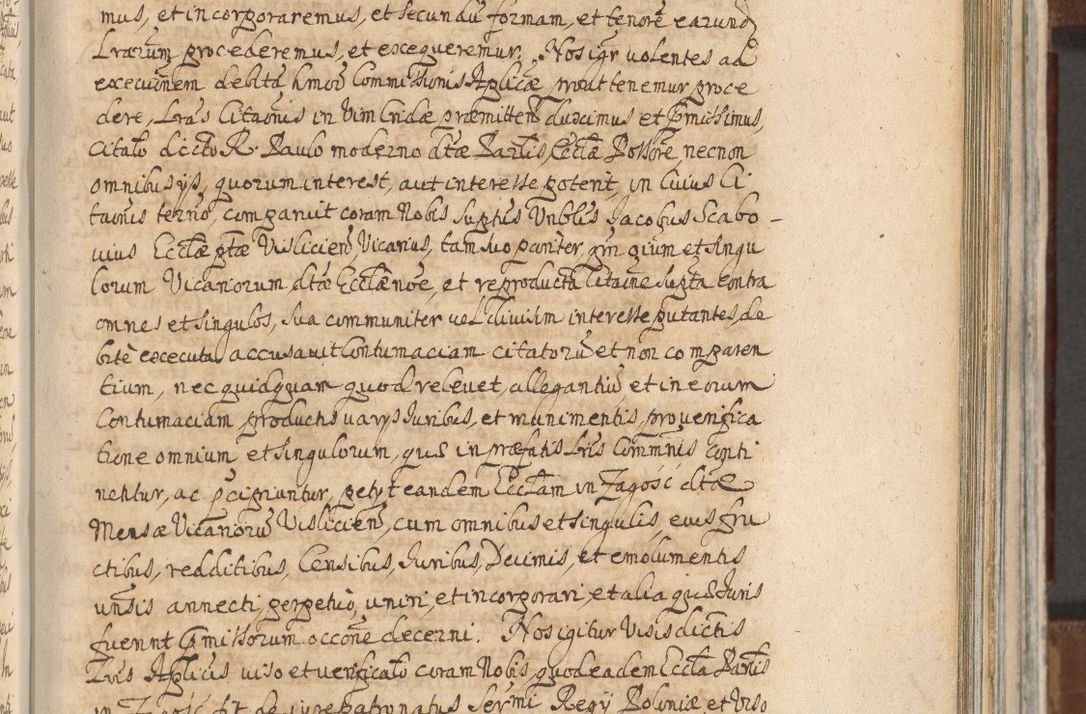 mus, et incorporaremus, et secundũ formam, et tenorẽ earund
Lrarum procederemus, et exequeremur. Nos igr volentes ad
executnem debitã hmoi Commissionis Aplicæ, prout tenemur, proce
dere, Lras Citaõnis in Vim Cridæ præmitten duximus et Pmisimus,
Citato dicto R. Paulo moderno dtæ Parlis Ecclæ Possore, necnon
omnibus ijs, quorum interest, aut interesse potent, in Cuius Ci
taõnis termõ, comparuit coram Nobis supius Vnblis Jacobus Scabo -
uius Ecclæ ptæ Vislicien Vicarius, tam suo pariter, qm oium et singu
lorum Vicariorum dtæ Ecclæ nõe, et reproducta Citaõne supta Contra
omnes et singulos, sua communiter vel divisim interesse putantes, de
bitè executa, accusavit Contumaciam citatorũ et non comparen
tium, nec quidquam quod relevet, allegantiũ, et in eorum
Contumaciam productis varijs Juribus, et munimentis, pro verifica
tione omnium et singulorum, quæ in præfatis Lris Commnis Conti
nentur, ac pcipiuntur, petyt eandem Ecclam in Zagość dtæ
Mensæ Vicariorũ Vislicien, cum omnibus et singulis, eius fru
ctibus, redditibus, Censibus, Juribus, Decimis, et emolumentis
unsis annecti, perpetuò, uniri, et incorporari, et alia quæ Juris
fuerint Pmissorum occõne decerni. Nos igitur Visis dictis
Lris Aplicis viso et verificato coram Nobis, quod eadem Eccla Parlis
in Zagość sit de jure patronatus Sermi Regij Poloniæ et Viso